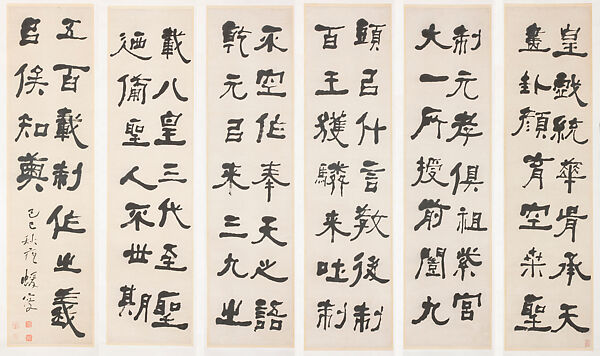 皇戲統華胥承天
畫卦顏育空桑聖
制元孝俱祖紫宮
大一所授前闓九
頭㠯什言敎後制
百王獲麟來吐制
不空作奉天之語
乾元㠯來三九之
載八皇三代至聖
迺備聖人不世期
五百載制作之義
㠯俟知奧
己巳秋 蝯叟